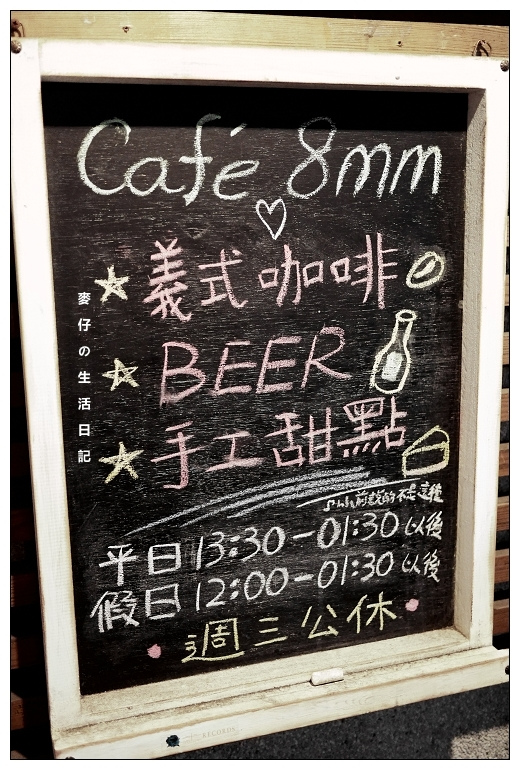 Café 8mm
義式咖啡
BEER
手工甜點
前說的不是這種
平日 13:30-01:30 以後
假日 12:00-01:30 以後
週三公休
麥仔の生活日記
RECORDS